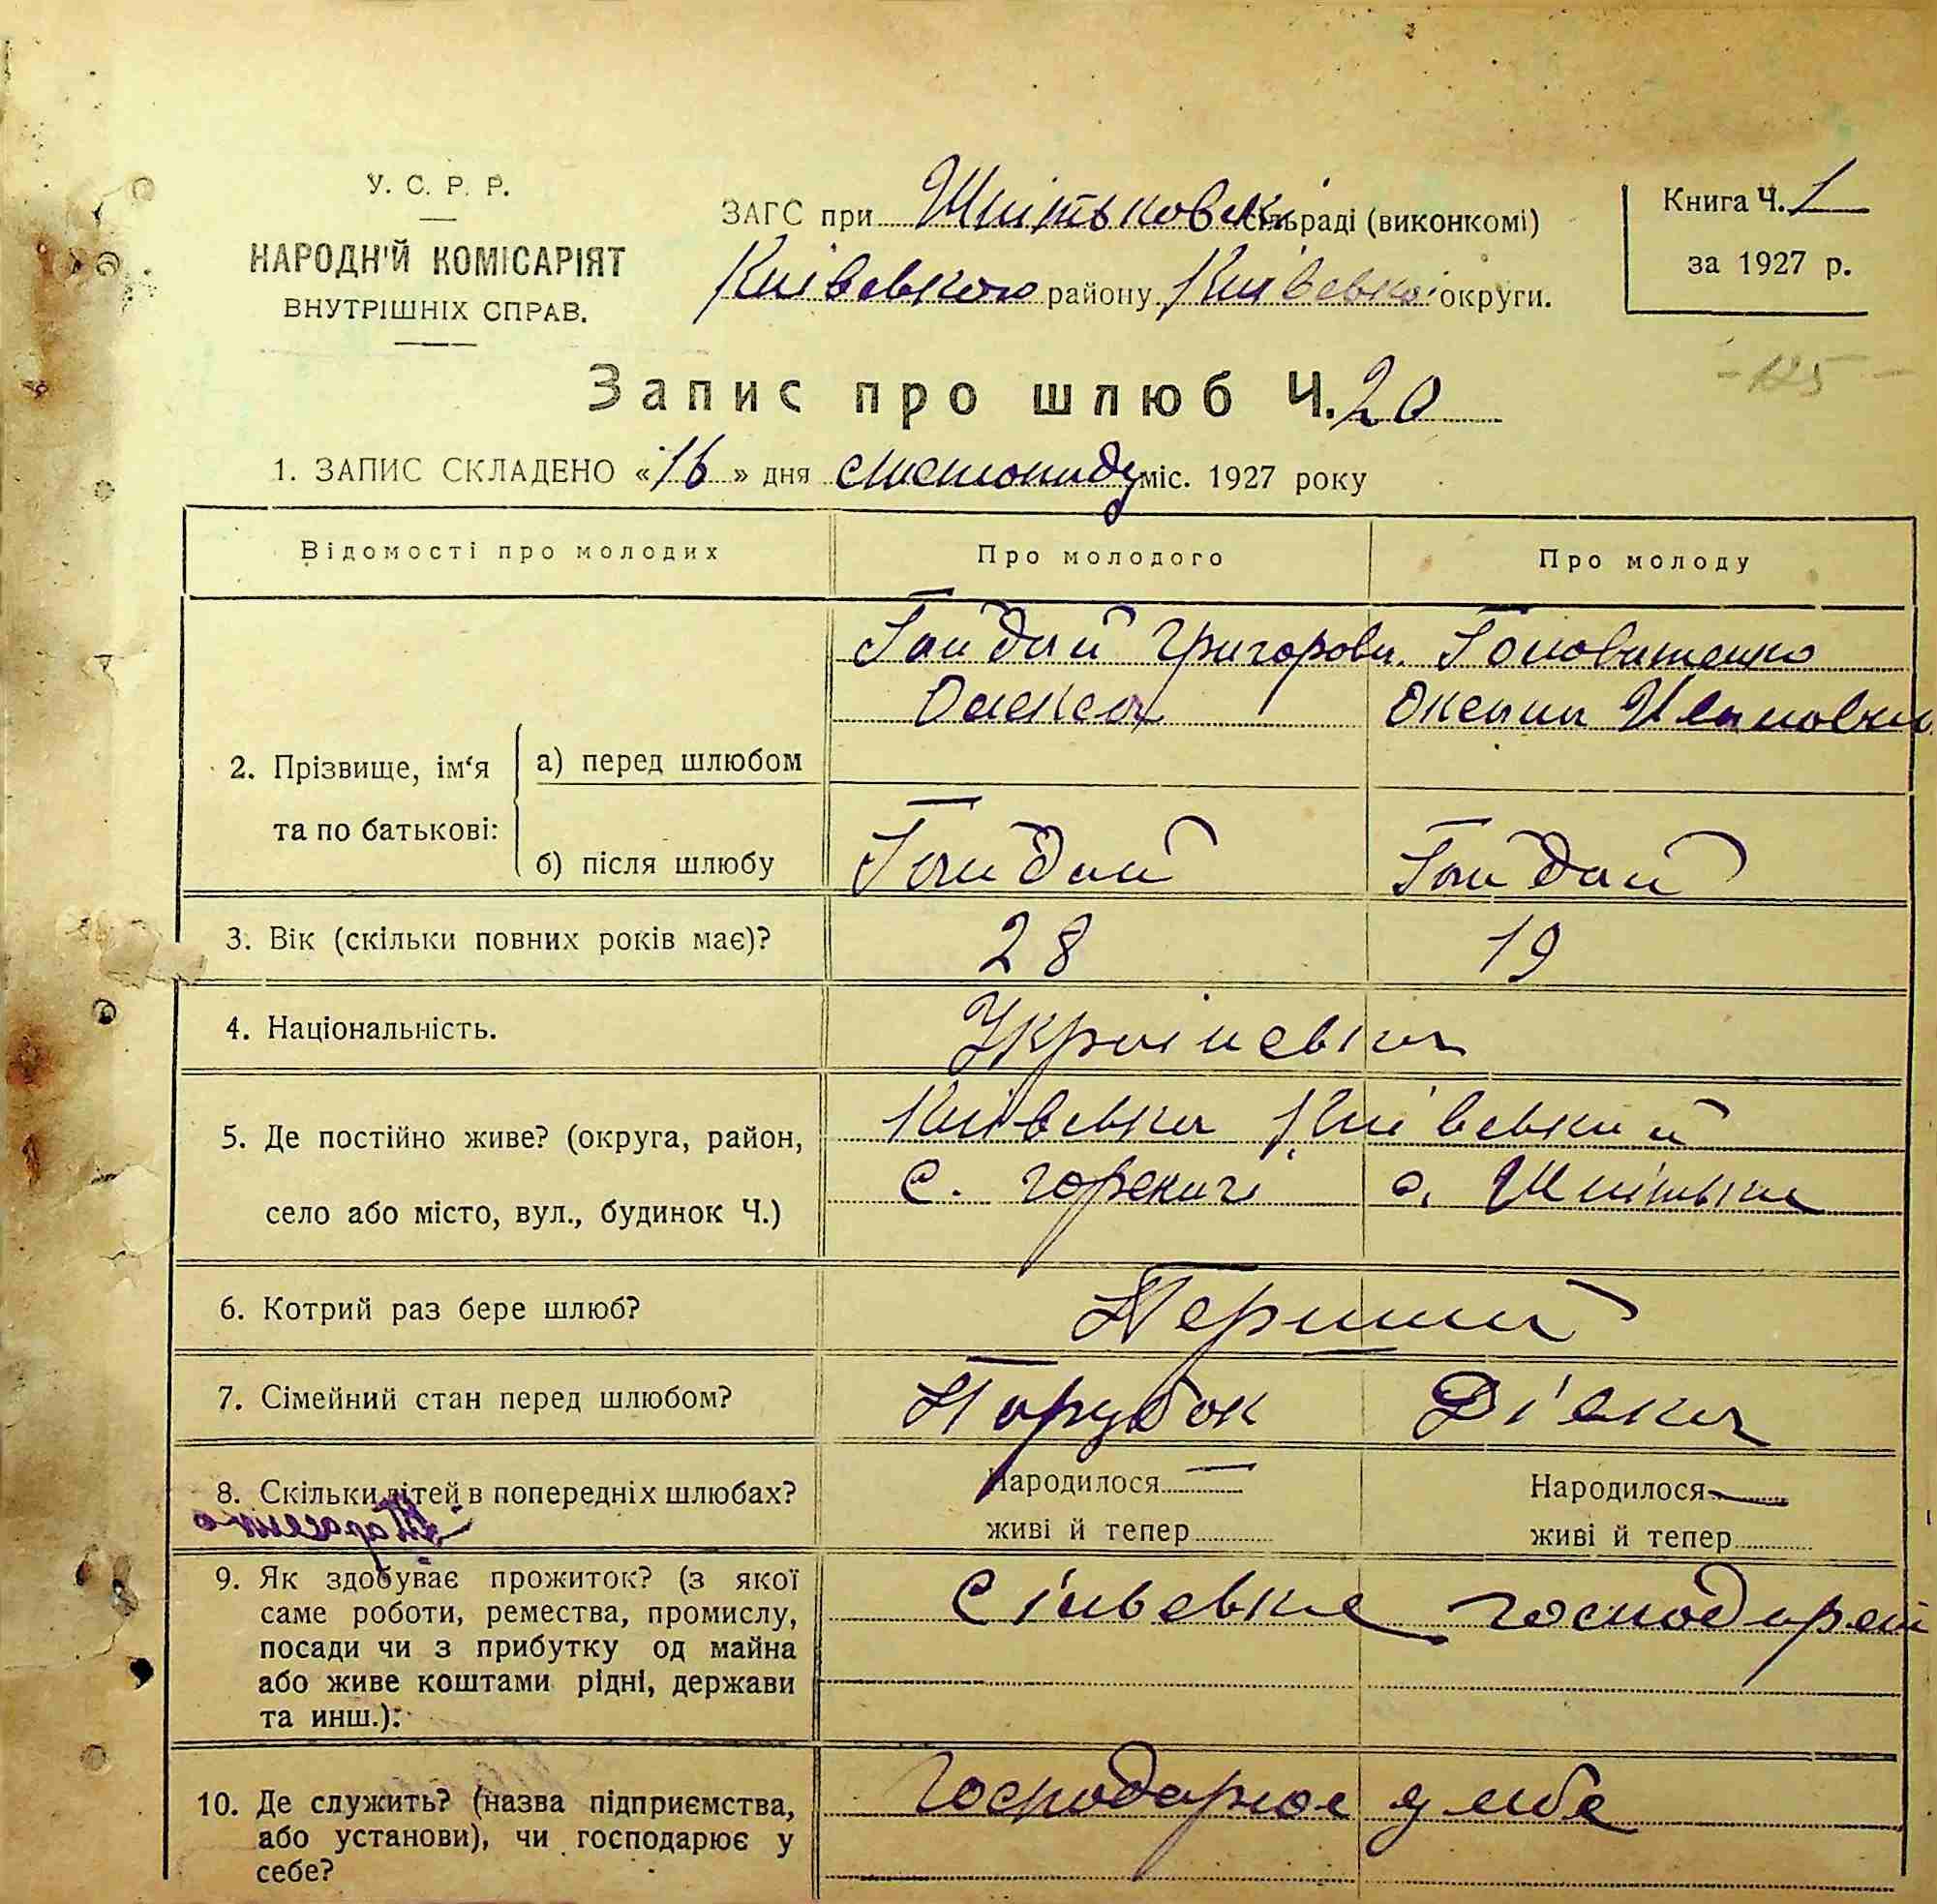 У. С. Р. Р.
НАРОДН'Й КОМІСАРІЯТ
ВНУТРІШНІХ СПРАВ.
ЗАГС при Шпітьковск сільраді (виконкомі)
Київського району Київської округи.
Книга Ч. 1
за 1927 р.
- 125 -
Запис про шлюб Ч. 20
1. ЗАПИС СКЛАДЕНО «16» дня листопаду міс. 1927 року
Відомості про молодих Про молодого Про молоду
Гайдай Григоров. Головатенко
Олекса Оксана Ивановна
2. Прізвище, ім‘я та по батькові:
а) перед шлюбом
б) після шлюбу Гайдай Гайдай
3. Вік (скільки повних років має)? 28 19
4. Національність. Українська
5. Де постійно живе? (округа, район, Київська Київський
село або місто, вул., будинок Ч.) с. Горекичі с. Шпітьки
6. Котрий раз бере шлюб? Перший
7. Сімейний стан перед шлюбом? Парубок Дівка
8. Скільки дітей в попередніх шлюбах? Народилося — Народилося —
живі й тепер живі й тепер
9. Як здобуває прожиток? (з якої Сільське господарст
саме роботи, ремества, промислу,
посади чи з прибутку од майна
або живе коштами рідні, держави
та инш.):
10. Де служить? (назва підприємства, Господарює у себе
або установи), чи господарює у
себе?